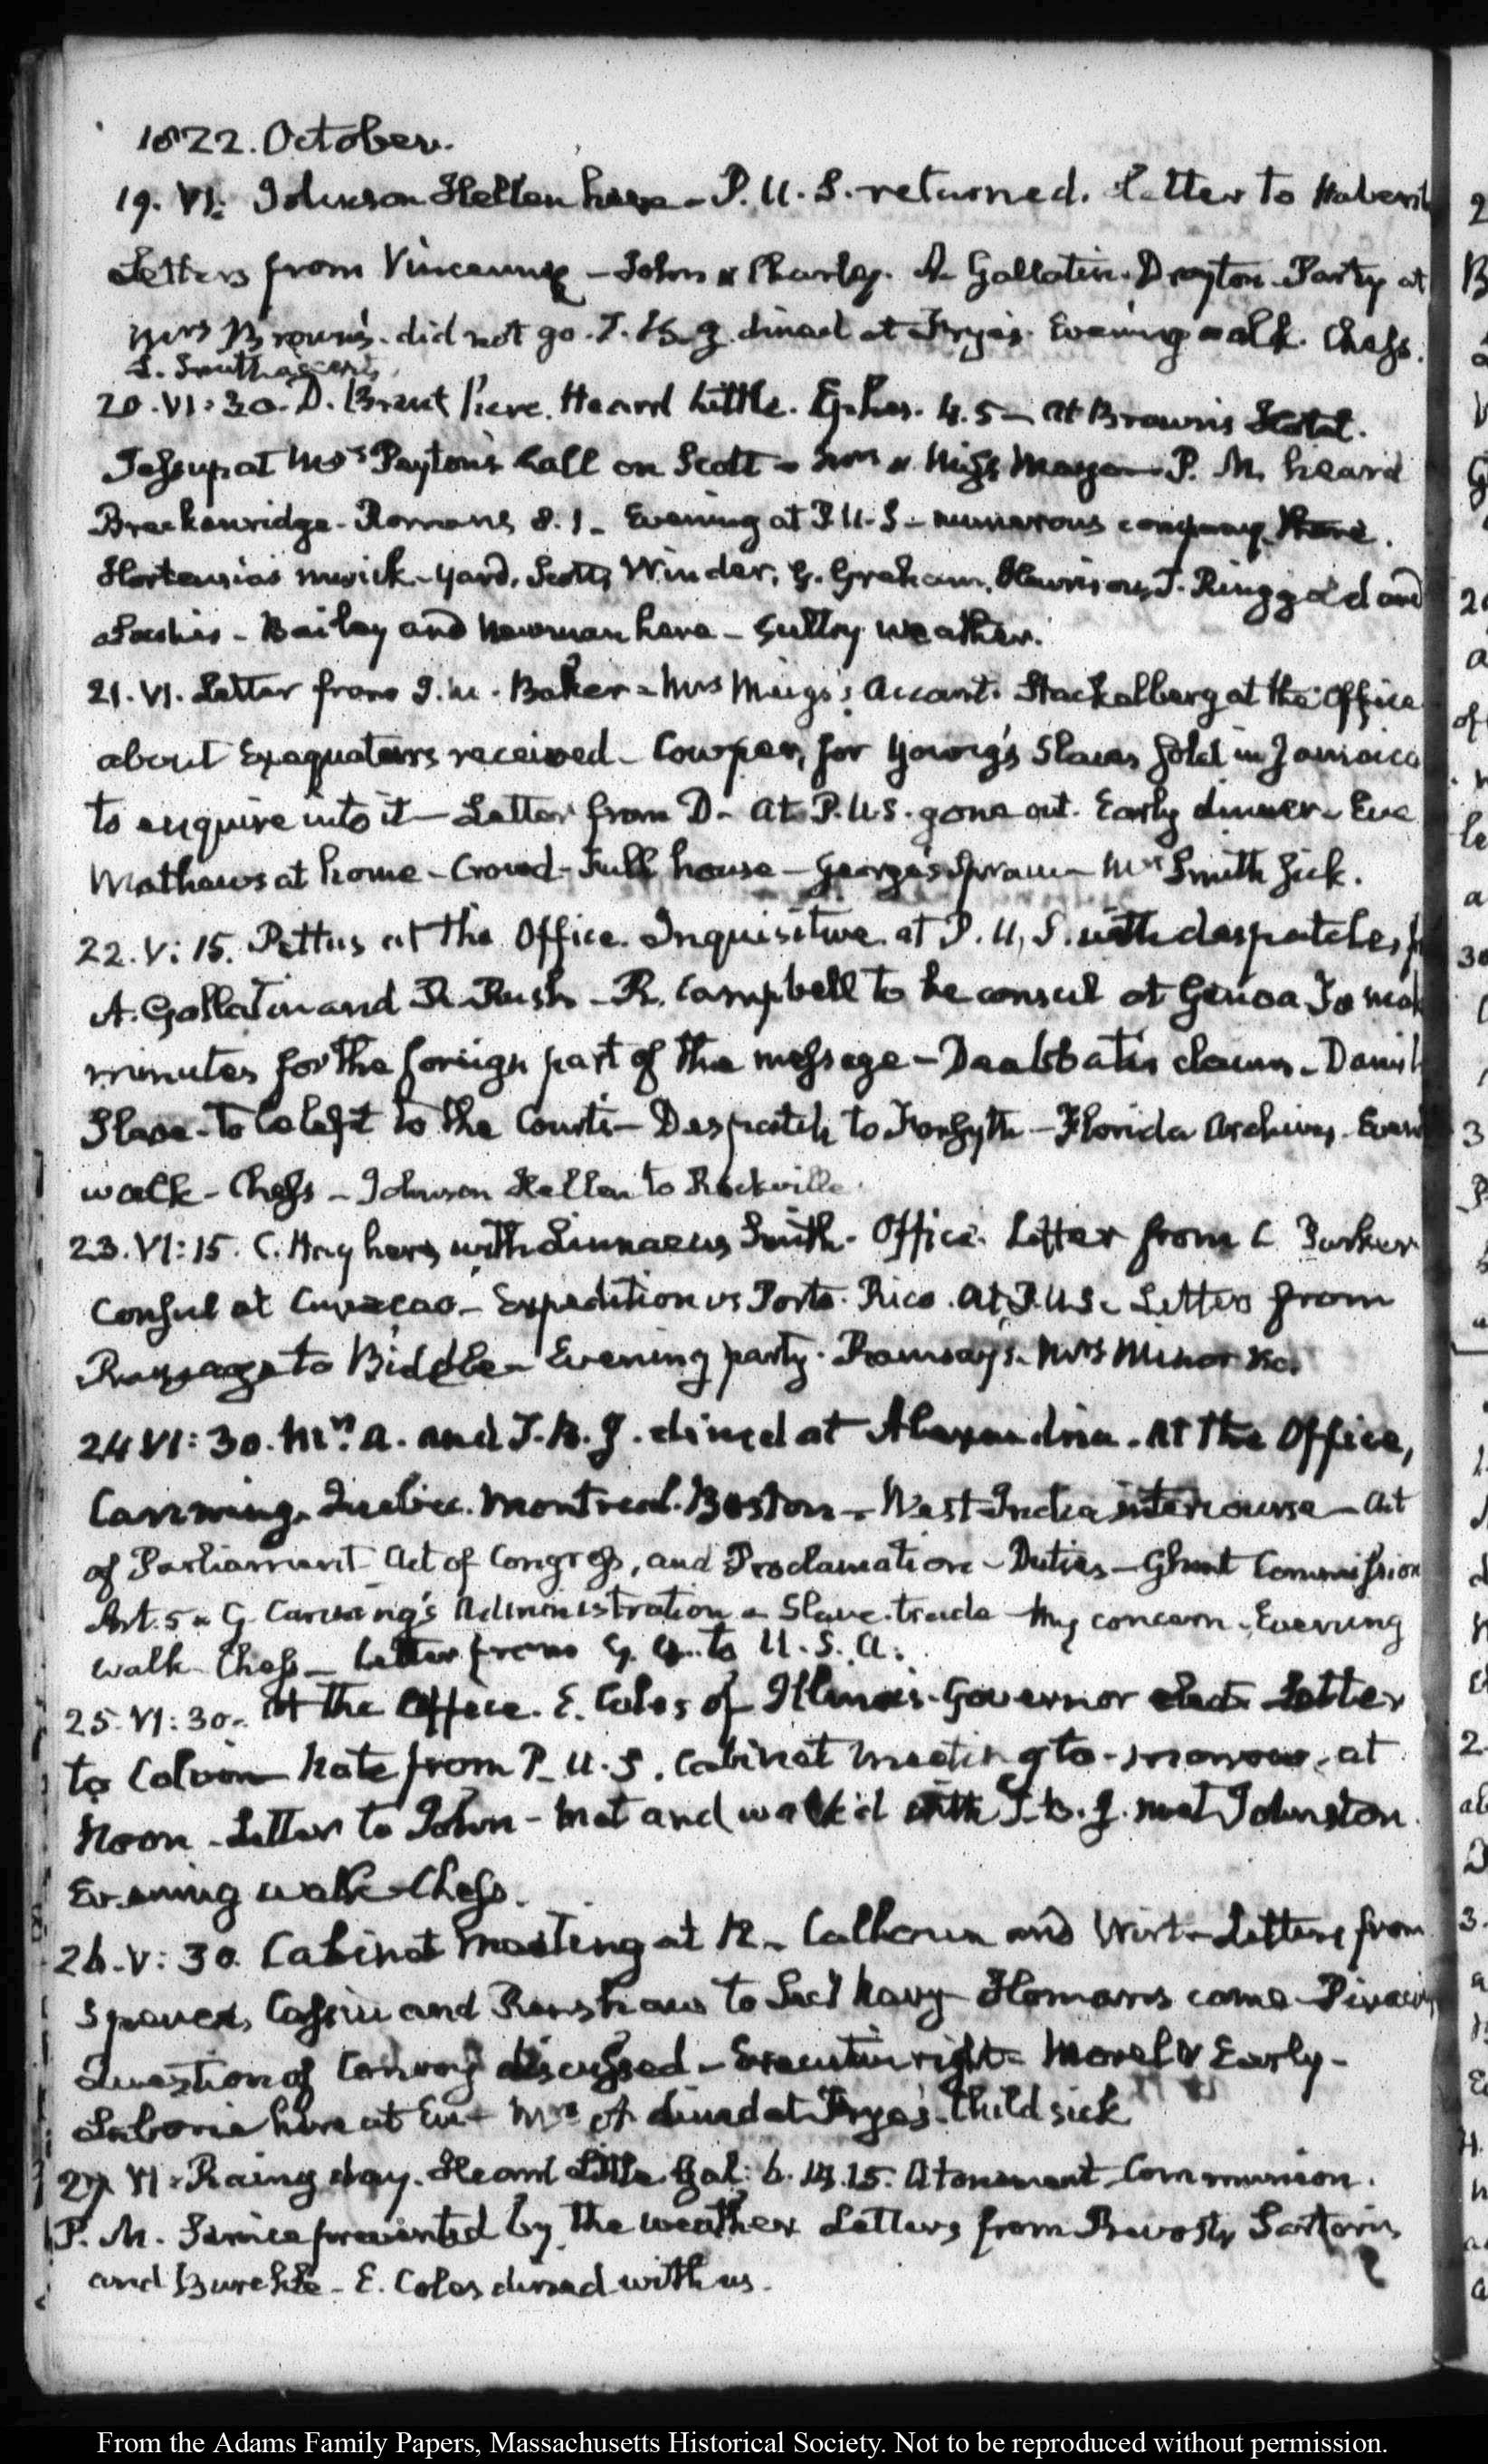 1822. October.
19. VI: Johnson Hellen here - P. U. S. returned. Letter to
Letters from Vincennes - John & Charles. A. Gallatin. Drayton. Party at
Mrs Brown's. did not go. T. B. J. dined at Frye's. Evening walk. Chess.
S. Southard
20. VI: 30. D. Brent here. Heard Little. Ephes. 4. 5 - at Brown's Hotel.
Jessup at Mrs Peyton's call on Scott - Mrs & Miss Mayo - P. M. heard
Breckenridge - Romans 8. 1 - Evening at P. U. S - numerous company there.
Hortensia's musick - Yard, Scott, Winder, G. Graham, T. Ringgold and
Ladies - Bailey and Newman here - Sultry weather.
21. VI. Letter from J. M. Baker - Mrs Meigs's Account. Stackelberg at the Office
about Exequaturs received - Cowper, for Young's Slaves sold in Jamaica
to enquire into it - Letter from D - at P. U. S. gone out. Early dinner - Eve
Mathews at home - Crowd - Full house - George's Sprain - Mrs Smith sick.
22. V: 15. Pettus at the Office. Inquisitive. at P. U. S. with despatches
A. Gallatin and R. Rush - R. Campbell to be consul at Genoa To
minutes for the foreign part of the message - claim -
Slave - to be left to the Courts - Despatch to Forsyth - Florida Archives.
walk - Chess - Johnson Hellen to Rockville.
23. VI: 15. C. Hay here, with Linnaeus Smith - Office. Letter from C Parker
Consul at Curacao - Expedition vs Porto. Rico. At P. U. S - Letter from
Ramage to Biddle - Evening party. Ramsay's. Mrs Minor &c.
24 VI: 30. Mrs A. and T. B. J. dined at Alexandria. At the Office,
Canning. Quebec. Montreal. Boston - West-India intercourse - Act
of Parliament Act of Congress, and Proclamation - Duties - Ghent Commission
Art. 5 - G. Canning's Administration - Slave-trade - My concern - Evening
walk Chess - Letter from G. G. to U. S. A.
25. VI: 30. At the Office. E. Coles of Illinois - Governor elect - Letter
to Colvin Note from P. U. S. Cabinet meeting to-morrow, at
Noon - Letter to John - Met and walk'd with T. B. J. met Johnston.
Evening walk - Chess.
26. V: 30. Cabinet meeting at 12 - Calhoun and Wirt - Letters from
Spence, Cassin and Renshaw to Secy Navy - Homans came
Question of Convoy discussed - Executive right - Morel & Early -
Laborie here at Eve - Mrs A dined at Frye's - Child sick
27. VI - Rainy day. Heard Little Gal: 6. 14. 15. Atonement - Communion.
P. M. Service prevented by the weather Letters from Prevost, Sartoris
and - E. Coles dined with us.
From the Adams Family Papers, Massachusetts Historical Society. Not to be reproduced without permission.